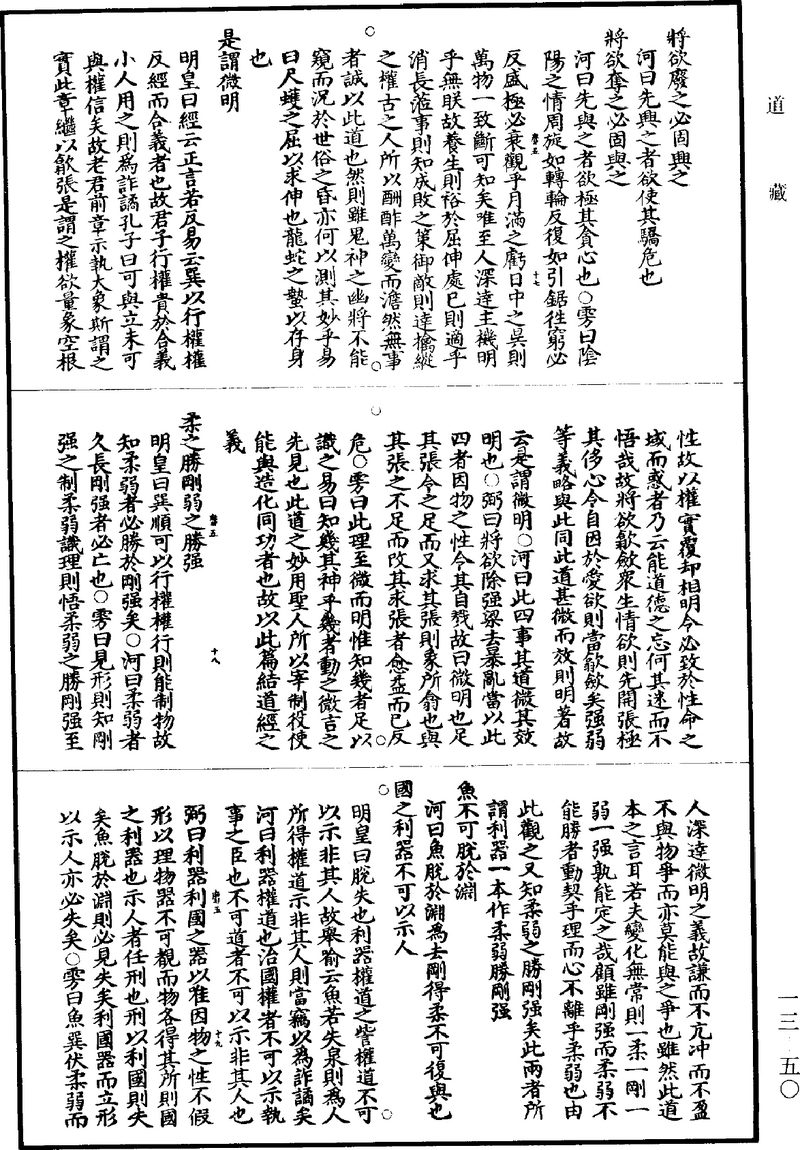 道藏
將欲廢之必固興之
河曰先興之者欲使其驕危也
將欲奪之必固與之
河曰先與之者欲極其貪心也○雱曰陰
陽之情周旋如轉輪反復如引鋸往窮必
反盛極必衰觀乎月滿之虧日中之昃則
萬物一致斷可知矣唯至人深達主機明
乎無朕故養生則裕於屈伸處已則適乎
消長涖事則知成敗之策御敵則達擒縱
之權古之人所以酬酢萬變而澹然無事
者誠以此道也然則雖鬼神之幽將不能
窺而況於世俗之昏亦何以測其妙乎易
曰尺蠖之屈以求伸也龍蛇之蟄以存身
也
是謂微明
明皇曰經云正言若反易云巽以行權權
反經而合義者也故君子行權貴於合義
小人用之則為詐譎孔子曰可與立未可
與權信矣故老君前章示執大象斯謂之
實此章繼以歙張是謂之權欲量象空根
性故以權實覆却相明令必致於性命之
域而惑者乃云能道德之忘何其迷而不
悟哉故將欲歙斂衆生情欲則先開張極
其侈心令自因於愛欲則當歙斂矣强弱
等義略與此同此道甚微而效則明著故
云是謂微明○河曰此四事其道微其效
明也○弼曰將欲除强梁去暴亂當以此
四者因物之性令其自戮故曰微明也足
其張令之足而又求其張則象所翕也與
其張之不足而改其求張者愈益而已反
危○雱曰此理至微而明惟知幾者足以
識之易曰知幾其神乎幾者動之微吉之
先見也此道之妙用聖人所以宰制役使
能與造化同功者也故以此篇結道經之
義
柔之勝剛弱之勝强
明皇曰巽順可以行權權行則能制物故
知柔弱者必勝於剛强矣○河曰柔弱者
久長剛强者必亡也○雱曰見形則知剛
强之制柔弱識理則悟柔弱之勝剛强至
人深達微明之義故謙而不亢冲而不盈
不與物爭而亦莫能與之爭也雖然此道
本之言耳若夫變化無常則一柔一剛一
弱一强孰能定之哉顧雖剛强而柔弱不
能勝者動契乎理而心不離乎柔弱也由
此觀之又知柔弱之勝剛强矣此兩者所
謂利器一本作柔弱勝剛强
魚不可脫於淵
河曰魚脫於淵為去剛得柔不可復與也
國之利器不可以示人
明皇曰脫失也利器權道之訾權道不可
以示非其人故舉喻云魚若失泉則為人
所得權道示非其人則當竊以為詐譎矣
河曰利器權道也治國權者不可以示執
事之臣也不可道者不可以示非其人也
弼曰利器利國之器以唯因物之性不假
形以理物器不可覩而物各得其所則國
之利器也示人者任刑也刑以利國則失
矣魚脫於淵則必見失矣利國器而立形
以示人亦必失矣○雱曰魚巽伏柔弱而
一三·五〇